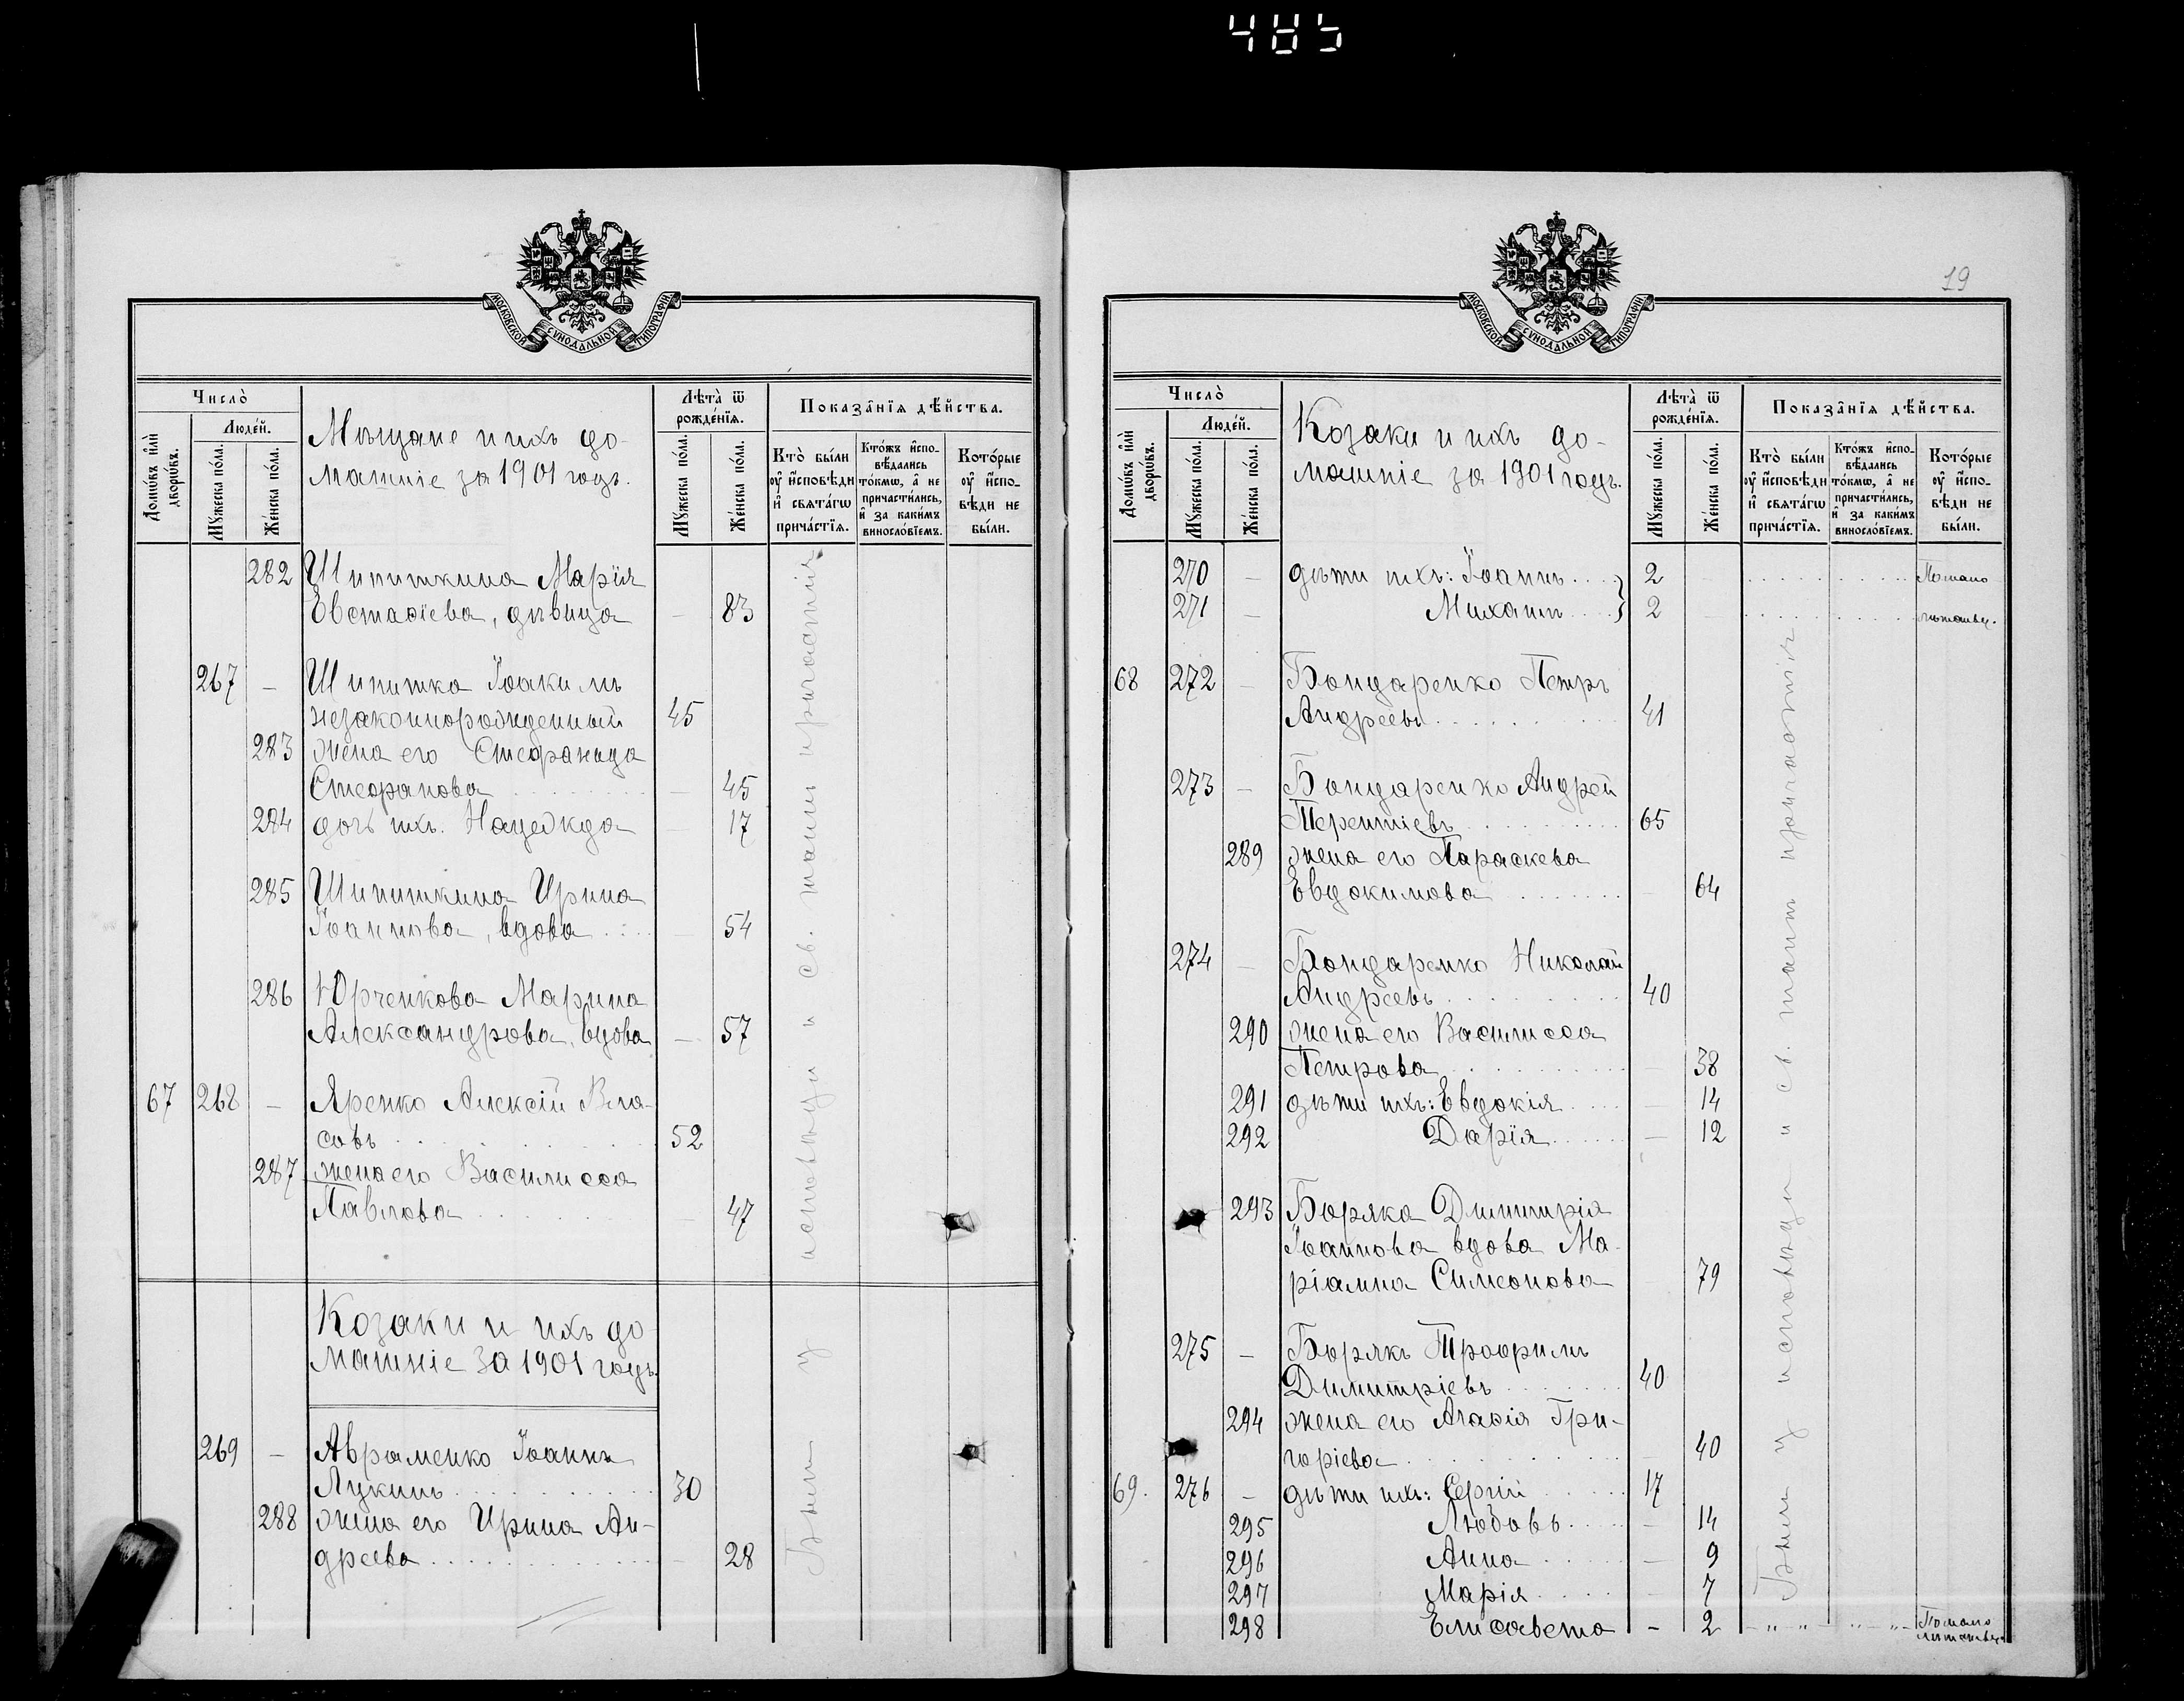 485
МОСКОВСКОЙ СѴНОДАЛЬНОЙ ТИПОГРАФІИ
Число̀
Люде́й.
Домѡ́въ и҆лѝ дворѡ́въ.
Мꙋ́жеска по́ла.
Же́нска по́ла.
Мѣщане и ихъ до-
машніе за 1901 годъ.
Лѣта̀ ѿ рожде́нїѧ.
Мꙋ́жеска по́ла.
Же́нска по́ла.
Показа̑нїѧ дѣ́йства.
Кто̀ бы́ли ᲂу҆ и҆́сповѣди и҆ свѧта́гѡ прича́стїѧ.
Кто́жъ и҆сповѣ́дались то́кмѡ, а҆ не причасти́лись, и҆ за каки́мъ виносло́вїемъ.
Кото́рые ᲂу҆ и҆́сповѣди не бы́ли.
282 Шипиткина Марія
Евстаѳіева, дѣвица — 83
267 — Шипитка Іоакимъ
незаконнорожденный 45
283 жена его Стефанида
Стефанова — 45
284 дочь ихъ. Надежда — 17
285 Шипиткина Ирина
Іоаннова, вдова — 54
286 Юрченкова Марина
Александрова, вдова — 57
67 268 — Яренко Алексій Вла-
совъ 52
287 жена его Василисса
Павлова — 47
Козаки и ихъ до
машніе за 1901 годъ.
269 — Авраменко Іоаннъ
Лукинъ 30
288 жена его Ирина Ан-
дреева — 28
Были у исповѣди и св. таинъ причастія
19
МОСКОВСКОЙ СѴНОДАЛЬНОЙ ТИПОГРАФІИ
Число̀
Люде́й.
Домѡ́въ и҆лѝ дворѡ́въ.
Мꙋ́жеска по́ла.
Же́нска по́ла.
Козаки и ихъ до-
машніе за 1901 годъ.
Лѣта̀ ѿ рожде́нїѧ.
Мꙋ́жеска по́ла.
Же́нска по́ла.
Показа̑нїѧ дѣ́йства.
Кто̀ бы́ли ᲂу҆ и҆́сповѣди и҆ свѧта́гѡ прича́стїѧ.
Кто́жъ и҆сповѣ́дались то́кмѡ, а҆ не причасти́лись, и҆ за каки́мъ виносло́вїемъ.
Кото́рые ᲂу҆ и҆́сповѣди не бы́ли.
270 — дѣти ихъ: Іоаннъ 2 По мало
271 — Михаилъ 2 лѣтству.
68 272 — Бондаренко Петръ
Андреевъ 41
273 — Бондаренко Андрей
Терентіевъ 65
289 жена его Параскева
Евдокимова — 64
274 — Бондаренко Николай
Андреевъ 40
290 жена его Василисса
Петрова — 38
291 дѣти ихъ: Евдокія — 14
292 Дарія — 12
293 Боряка Димитрія
Іоаннова вдова Ма-
ріамна Симеонова 79
275 — Борякъ Трофимъ
Димитріевъ 40
294 жена его Агафія Гри-
горіева — 40
69. 276 — дѣти ихъ: Сергій 17
295 Любовь — 14
296 Анна — 9
297 Марія — 7
298 Елисавета — 2 По мало
лѣтству.
Были у исповѣди и св. таинъ причастія